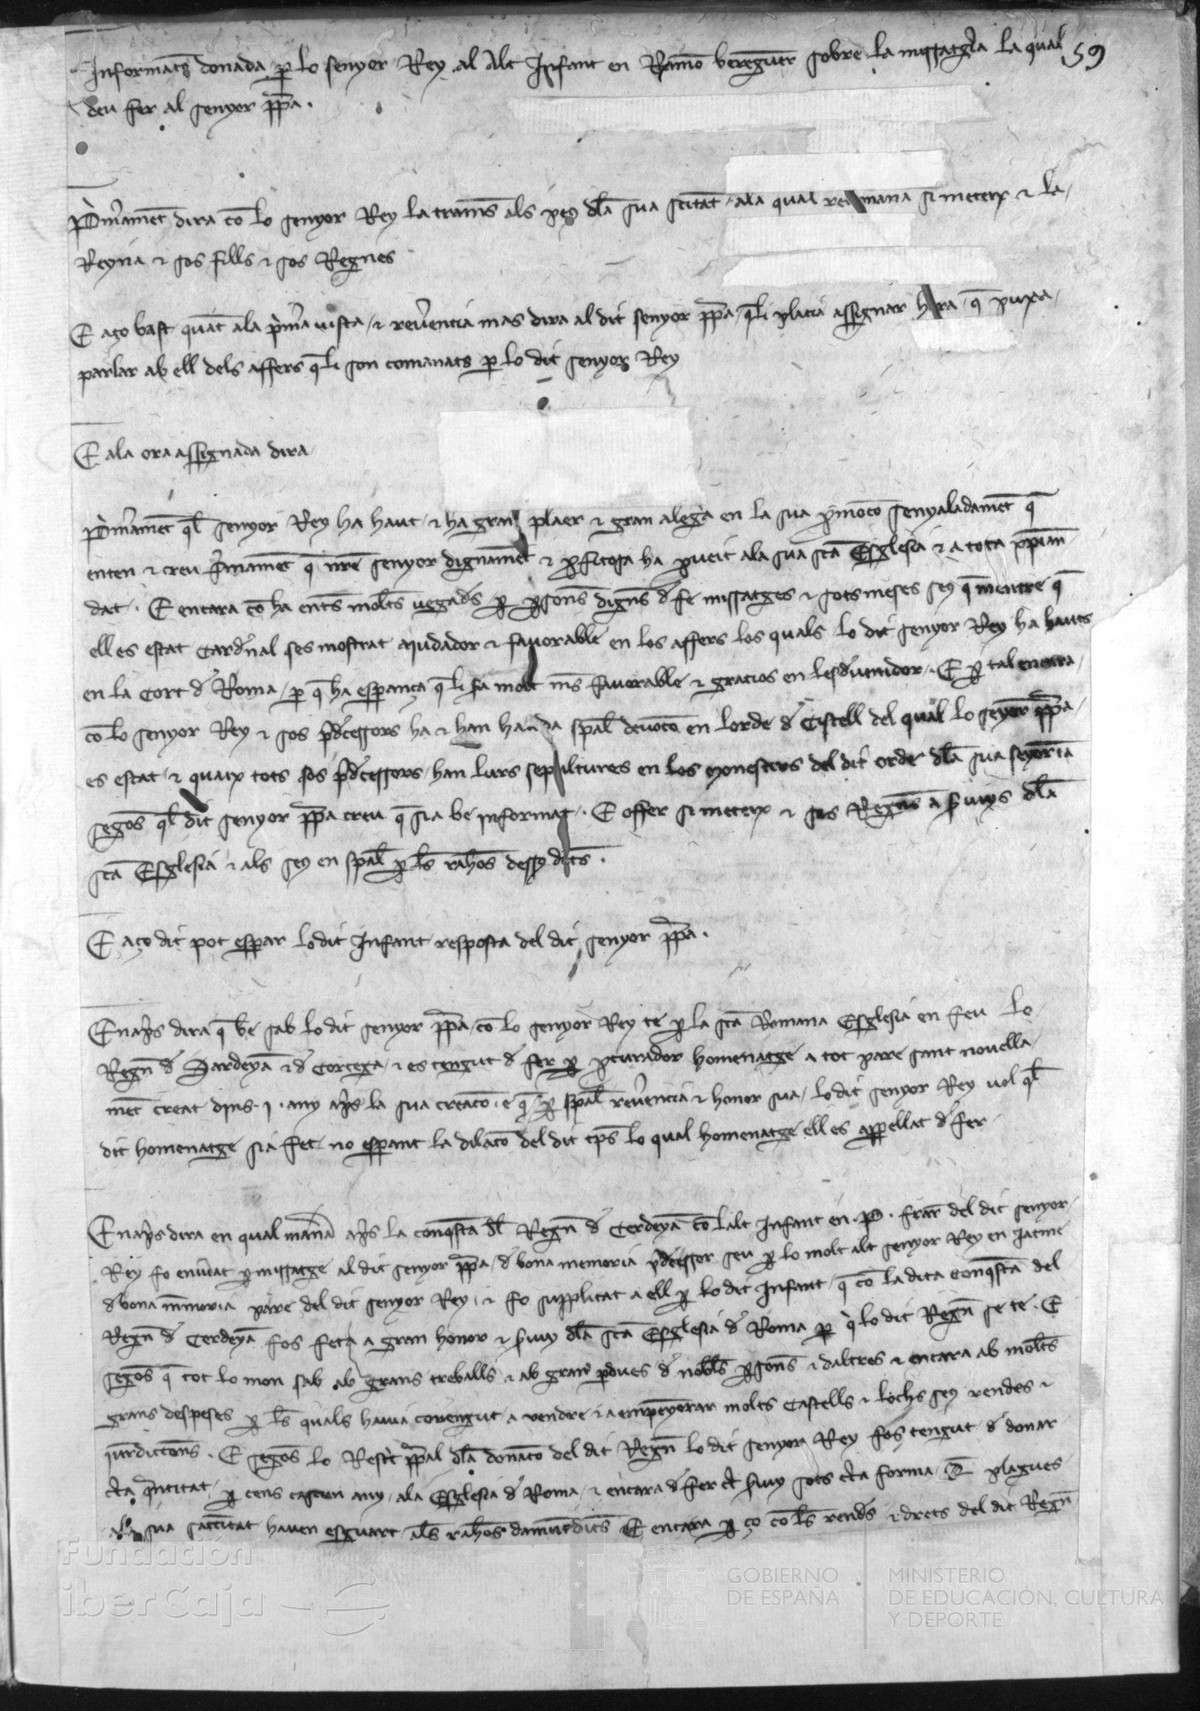 Informats donada p lo senyor Rey al Alt Infant en Ramo bereguer sobre la missatgia la qual 59
deu fer al senyor ppa.
Primamet dira co lo senyor Rey la trams als peus dla sua sctitat ala qual recomana si meteix e la
Reyna e sos fills e sos Regnes
E aço bast quat ala pma vista e revencia mas dira al dit senyor ppa qli placia assignar hora q puxa
parlar ab ell dels affers qli son comanats p lo dit senyor Rey
E ala ora assignada dira
Primamet ql senyor Rey ha haut e ha gran plaer e gran alegra en la sua pmoco senyaladamet q
enten e creu fmamet q nre senyor dignamet e pfitosa ha pveit ala sua sca Esglesia e a tota xpian
dat. E encara co ha ents molts vegads p psons dignes d fe missatges e sotsmeses seus q mentre q
ell es estat Cardnal ses mostrat ajudador e favorable en los affers los quals lo dit senyor Rey ha hauts
en la Cort d Roma p q ha espança qli sia molt mes favorable e gracios en lesdvenidor. E p tal encara
co lo senyor Rey e sos pdecessors ha e han hauda spal devoco en lorde d Cistell del qual lo senyor ppa
es estat e quaix tots sos pdecessors han lurs sepultures en los monestirs del dit orde dla sua senyoria
segos ql dit senyor ppa creu q sia be informat. E offer si meteix e sos Regnes a sviys dla
sca Esglesia e als seus en spal p les rahos dessus dites.
E aço dit pot espar lo dit Infant resposta del dit senyor ppa.
E naps dira q be sab lo dit senyor ppa co lo senyor Rey te p la sca Romana Esglesia en feu lo
Regn d Sardeya e d Corcega e es tengut d fer p pcurador homenatge a tot pare sant novella
met creat dins .j. any aps la sua creaco e q p spal revencia e honor sua lo dit senyor Rey vol ql
dit homenatge sia fet no espant la dilaco del dit temps lo qual homenatge ell es appellat d fer
E naps dira en qual mana aps la conqsta dl Regn d Cerdeya co lalt Infant en .P. frar del dit senyor
Rey fo enviat p missatge al dit senyor ppa d bona memoria pdecessor seu p lo molt alt senyor Rey en Jacme
d bona memoria pare del dit senyor Rey e fo supplicat a ell p lo dit Infant q co la dita conqsta del
Regn d Cerdeya fos feta a gran honor e sviy dla sca Esglesia d Roma p q lo dit Regn se te. E
segos q tot lo mon sab ab grans treballs e ab gran pdues d nobles psons e daltres e encara ab molts
grans despeses p les quals havia covengut a vendre e a empenyorar molts Castells e lochs seus rendes e
juridiccions. E segos lo Rescrit ppal dla donaco del dit Regn lo dit senyor Rey fos tengut d donar
cta quantitat p cens cascun any ala Esglesia d Roma e encara d fer ct sviy sots cta forma. Q plagues
ala sua sanctitat haven esguart als rahos damunt dites E encara p ço co les rends e drets del dit Regn
Fundación
iberCaja
GOBIERNO
DE ESPAÑA
MINISTERIO
DE EDUCACIÓN, CULTURA
Y DEPORTE